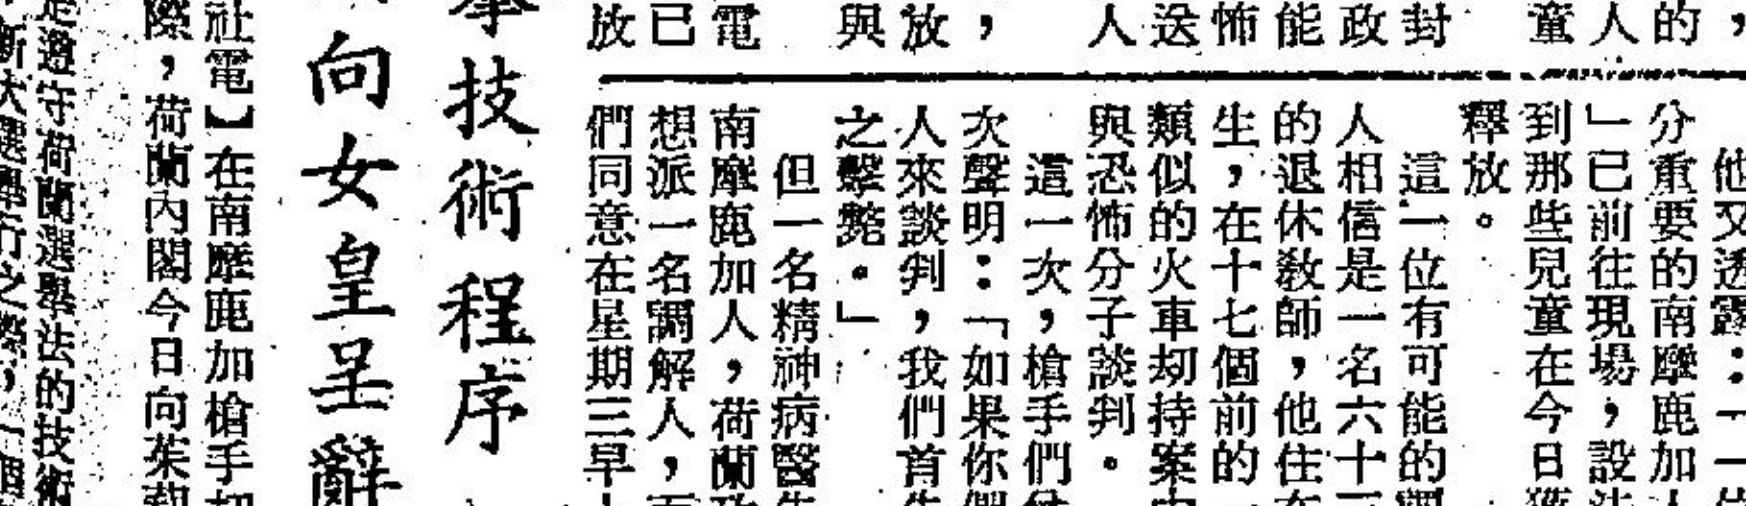 ，
的
人
童
封
政
能
怖
送
人
，
放
與
電
已
放
他又透露：一一
分重要的南摩鹿加人
」已前往現場，設法
到那些兒童在今日獲
釋放。
這一位有可能的調
人相信是一名六十
的退休教師，他住在
生，在十七個前的一
類似的火車刧持案中
與恐怖分子談判。
這一次，槍手們
次聲明：「如果你們
人來談判，我們首先
之擊斃。」
但一名精神病醫生
南摩鹿加人，荷蘭政
想派一名調解人，而
們同意在星期三早
技術程序
向女皇呈辭
社電】在南摩鹿加槍手刧
際，荷蘭內閣今日向茱
是遵守荷蘭選舉法的技術
新大選舉行之際，一個